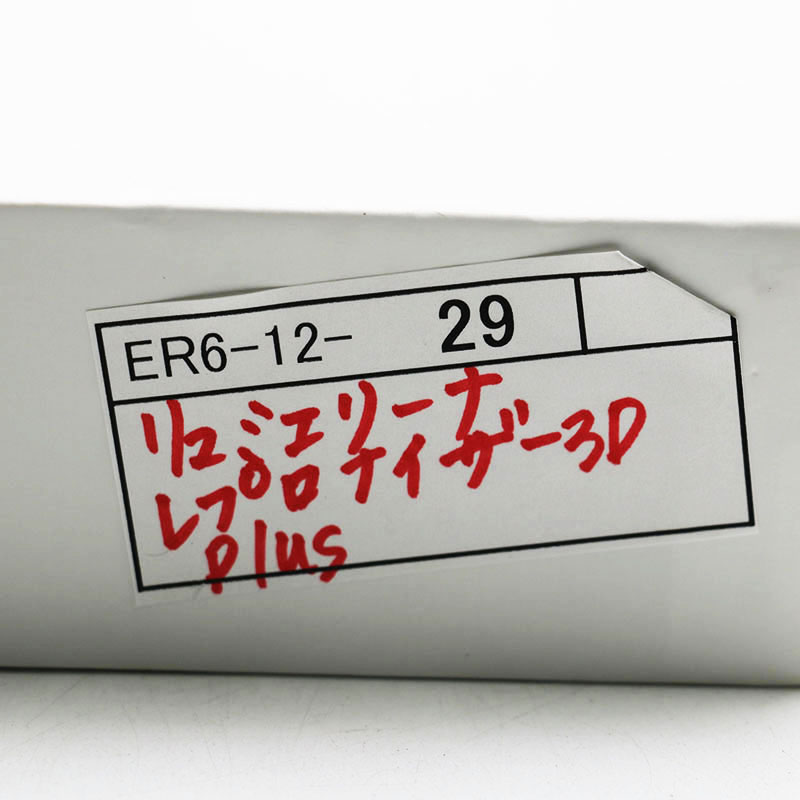 ER6-12- 29
リュミエリーナ
レプロナイザー3D
plus